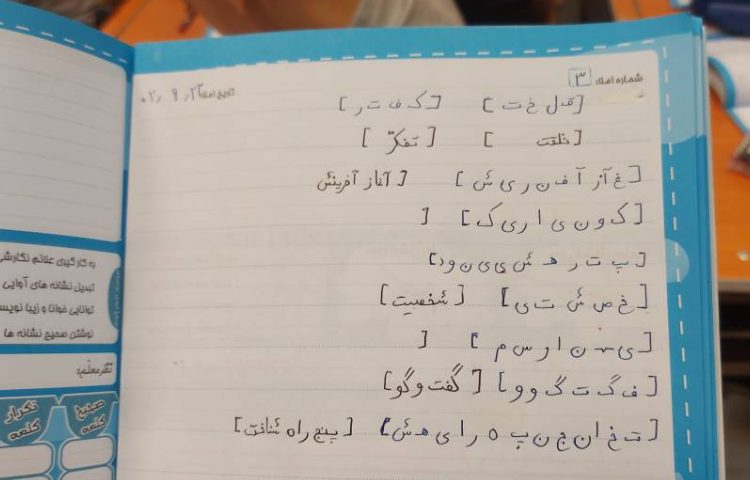 شماره املا: ۳
تاریخ املا: ۰۲٫ ۹ ٫۲۱
[ق ل خ ت] [ک ف ت ر]
[خلقت] [تفکّر]
[غ آ ز آ ف ن ر ی ش] [آغاز آفرینش]
[ک و ن ی ا ر ی ک] [
[پ ت ر ه ش ی ی ن و د]
[خ ص ش ت ی] [شخصیت]
[ی ن ا و س م] [
[ف گ ت گ و و] [گفت و گو]
[ت خ ا ن ج ن پ ه ر ا ی ه ش] [پنج راه شناخت]
به کارگیری علائم نگارشی
تبدیل نشانه های آوایی
توانایی خوانا و زیبا
نوشتن صحیح نشانه ها
نظر معلّم:
صحیح کلمه
تکرار کلمه